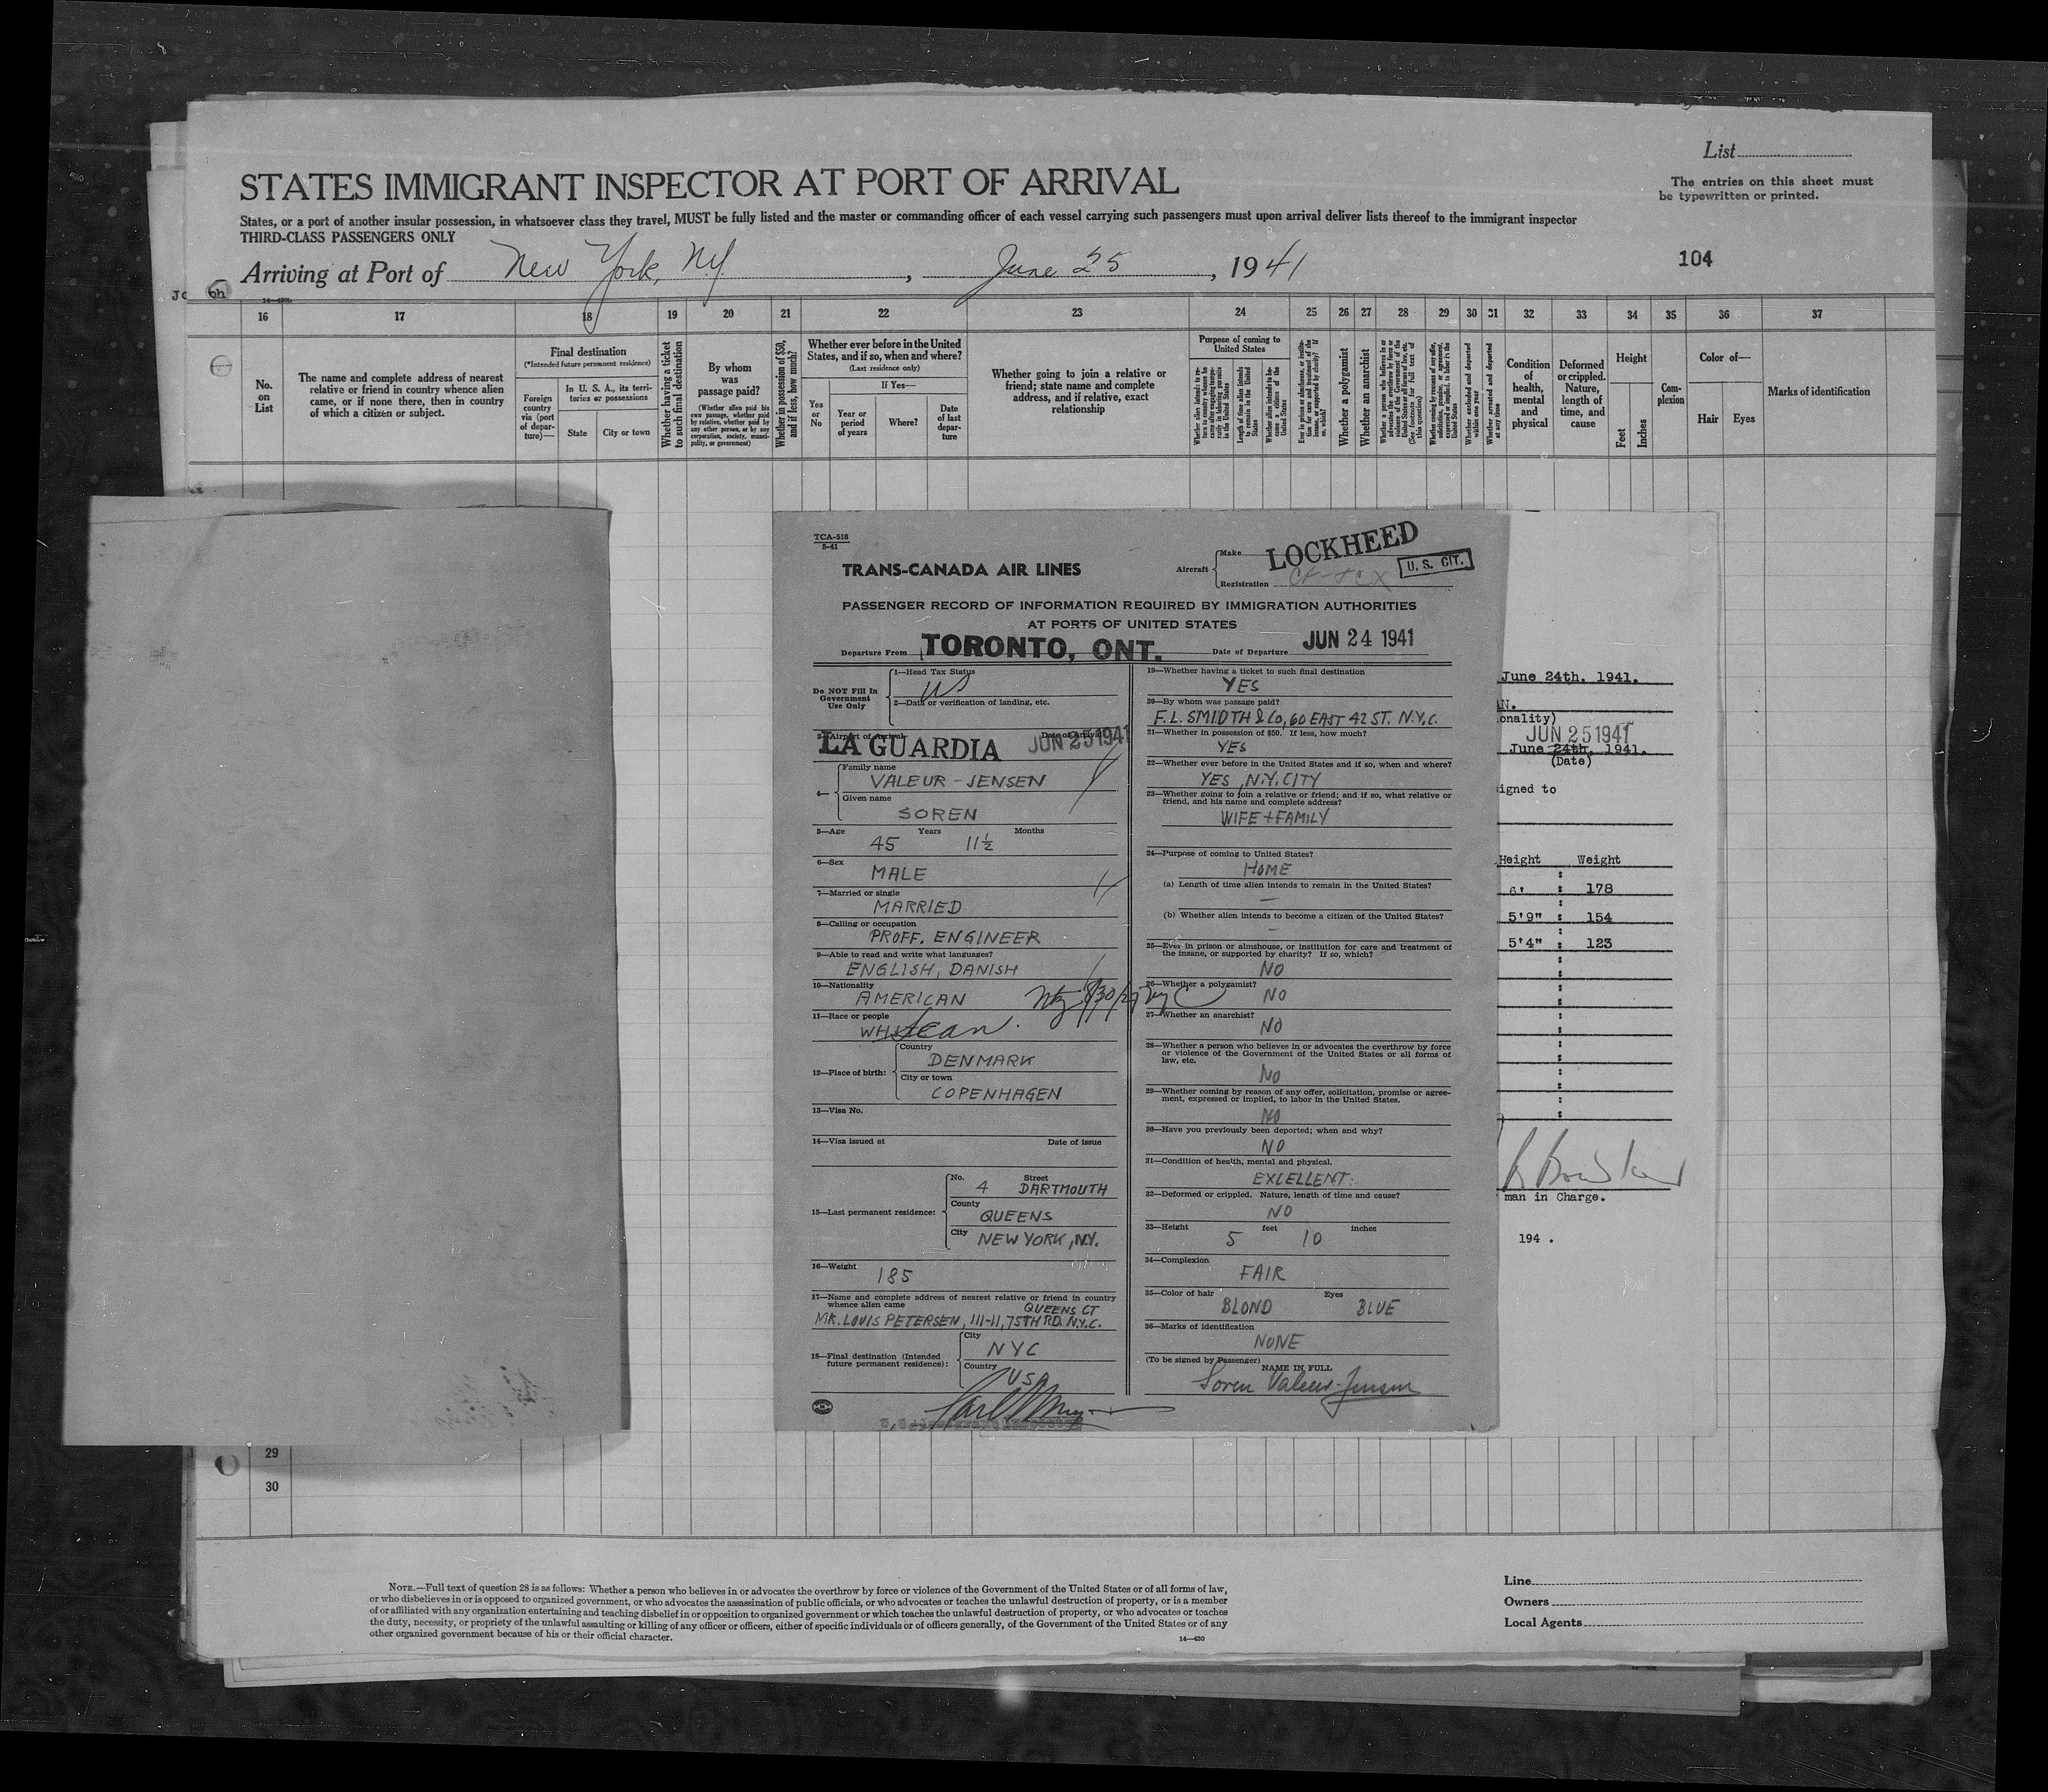 List
The entries on this sheet must
be typewritten or printed.
STATES IMMIGRANT INSPECTOR AT PORT OF ARRIVAL
States, or a port of another insular possession, in whatsoever class they travel, MUST be fully listed and the master or commanding officer of each vessel carrying such passengers must upon arrival deliver lists thereof to the immigrant inspector
THIRD-CLASS PASSENGERS ONLY
Arriving at Port of New York, N.Y. , June 25 , 1941
104
16 17 18 19 20 21 22 23 24 25 26 27 28 29 30 31 32 33 34 35 36 37
No. on List
The name and complete address of nearest
relative or friend in country whence alien
came, or if none there, then in country
of which a citizen or subject.
Final destination
(*Intended future permanent residence)
Foreign country via (port of departure)—
In U. S. A., its territories or possessions
State
City or town
Whether having a ticket to such final destination
By whom was passage paid?
(Whether alien paid his own passage, whether paid by relative, whether paid by any other person, or by any corporation, society, municipality, or government)
Whether in possession of $50, and if less, how much?
Whether ever before in the United
States, and if so, when and where?
(Last residence only)
Yes or No
If Yes—
Year or period of years
Where?
Date of last departure
Whether going to join a relative or
friend; state name and complete
address, and if relative, exact
relationship
Purpose of coming to United States
Length of time alien intends to remain in the United States
Whether alien intends to become a citizen of the United States
Whether a polygamist
Whether an anarchist
Whether excluded and deported within one year
Whether arrested and deported at any time
Condition of health, mental and physical
Deformed or crippled. Nature, length of time, and cause
Height
Feet
Inches
Complexion
Color of—
Hair
Eyes
Marks of identification
TCA-518
5-41
TRANS-CANADA AIR LINES
Aircraft
Make LOCKHEED
Registration
U. S. CIT.
PASSENGER RECORD OF INFORMATION REQUIRED BY IMMIGRATION AUTHORITIES
AT PORTS OF UNITED STATES
Departure From TORONTO, ONT.
Date of Departure JUN 24 1941
Do NOT Fill In
Government
Use Only
1—Head Tax Status
US
2—Data or verification of landing, etc.
3—Airport of Arrival
Date of Arrival
LA GUARDIA JUN 25 1941
4—
Family name
VALEUR-JENSEN
Given name
SOREN
5—Age Years Months
45 11½
6—Sex
MALE
7—Married or single
MARRIED
8—Calling or occupation
PROFF. ENGINEER
9—Able to read and write what languages?
ENGLISH, DANISH
10—Nationality
AMERICAN
11—Race or people
WHITE
12—Place of birth:
Country
DENMARK
City or town
COPENHAGEN
13—Visa No.
14—Visa issued at Date of issue
15—Last permanent residence:
No. Street
4 DARTMOUTH
County
QUEENS
City
NEW YORK, N.Y.
16—Weight
185
17—Name and complete address of nearest relative or friend in country
whence alien came
QUEENS CT
MR. LOUIS PETERSEN, 111-11, 75TH RD. N.Y.C.
18—Final destination (Intended
future permanent residence):
City
NYC
Country
USA
19—Whether having a ticket to such final destination
YES
20—By whom was passage paid?
F. L. SMIDTH & Co, 60 EAST 42 ST. N.Y.C.
21—Whether in possession of $50. If less, how much?
YES
22—Whether ever before in the United States and if so, when and where?
YES, N.Y. CITY
23—Whether going to join a relative or friend; and if so, what relative or
friend, and his name and complete address?
WIFE + FAMILY
24—Purpose of coming to United States?
HOME
(a) Length of time alien intends to remain in the United States?
—
(b) Whether alien intends to become a citizen of the United States?
—
25—Ever in prison or almshouse, or institution for care and treatment of
the insane, or supported by charity? If so, which?
NO
26—Whether a polygamist?
NO
27—Whether an anarchist?
NO
28—Whether a person who believes in or advocates the overthrow by force
or violence of the Government of the United States or all forms of
law, etc.
NO
29—Whether coming by reason of any offer, solicitation, promise or agree-
ment, expressed or implied, to labor in the United States.
NO
30—Have you previously been deported; when and why?
NO
31—Condition of health, mental and physical.
EXCELLENT.
32—Deformed or crippled. Nature, length of time and cause?
NO
33—Height feet inches
5 10
34—Complexion
FAIR
35—Color of hair Eyes
BLOND BLUE
36—Marks of identification
NONE
(To be signed by Passenger)
NAME IN FULL
Soren Valeur-Jensen
June 24th, 1941.
N.
onality)
JUN 25 1941
June 24th, 1941.
(Date)
igned to
Height Weight
6' : 178
5'9" : 154
5'4" : 123
man in Charge.
194 .
29
30
NOTE.—Full text of question 28 is as follows: Whether a person who believes in or advocates the overthrow by force or violence of the Government of the United States or of all forms of law,
or who disbelieves in or is opposed to organized government, or who advocates the assassination of public officials, or who advocates or teaches the unlawful destruction of property, or is a member
of or affiliated with any organization entertaining and teaching disbelief in or opposition to organized government or which teaches the unlawful destruction of property, or who advocates or teaches
the duty, necessity, or propriety of the unlawful assaulting or killing of any officer or officers, either of specific individuals or of officers generally, of the Government of the United States or of any
other organized government because of his or their official character.
14—430
Line
Owners
Local Agents